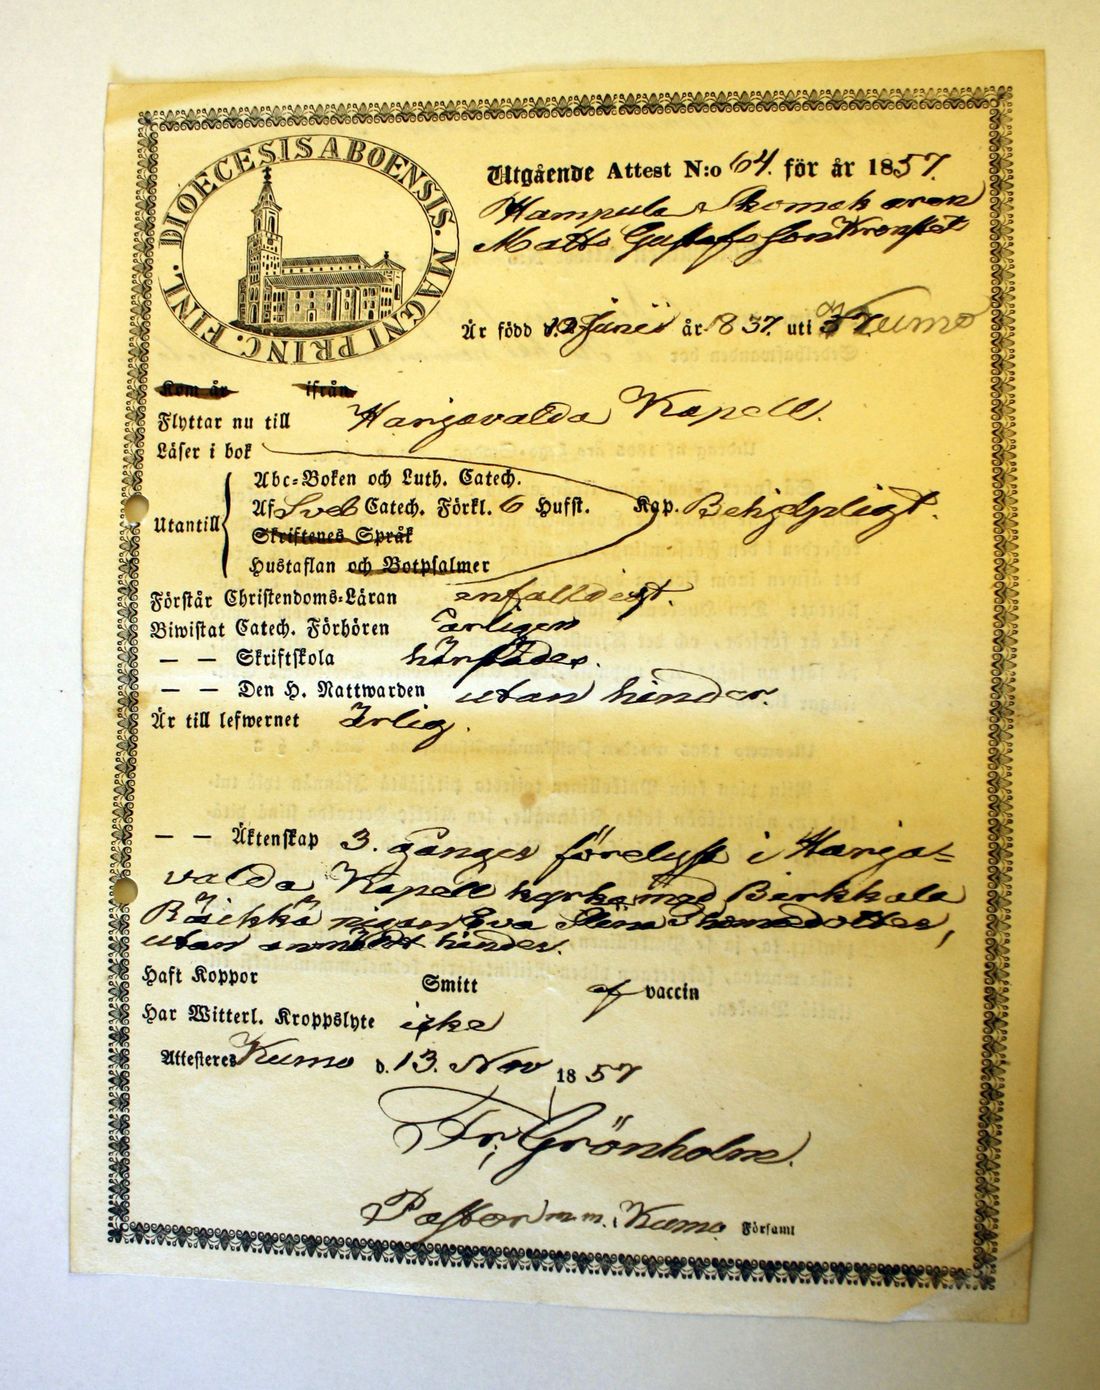 DIOECESIS ABOENSIS. MAGNI PRINC. FINL.
Utgående Attest N:o 64. för år 1857.
Hampula Skomakaren
Matts Gustafsson Kronstet
Är född d. 12 Junii år 1837. uti Kumo
Kom år ifrån
Flyttar nu till Harjavalda Kapell.
Läser i bok
Abc-Boken och Luth. Catech.
Utantill Af Sveb Catech. Förkl. 6 Hufst. Kap. Behjelpligt.
Skriftenes Språk
Hustaflan och Botpsalmer
Förstår Christendoms-Läran enfalldigt.
Biwistat Catech. Förhören Ärligen
— — Skriftskola härstädes.
— — Den H. Nattwarden utan hinder.
Är till lefwernet Ärlig.
— — Äktenskap 3. gånger förelyst i Harja-
valda Kapell kyrka med Birkkala
pigan Eva Stina
utan anmäldt hinder.
Haft Koppor Smitt af vaccin
Har Witterl. Kroppslyte icke
Attesteres Kumo d. 13. Nov 1857
Fr. Grönholm.
Pastor m.m. i Kumo Församl